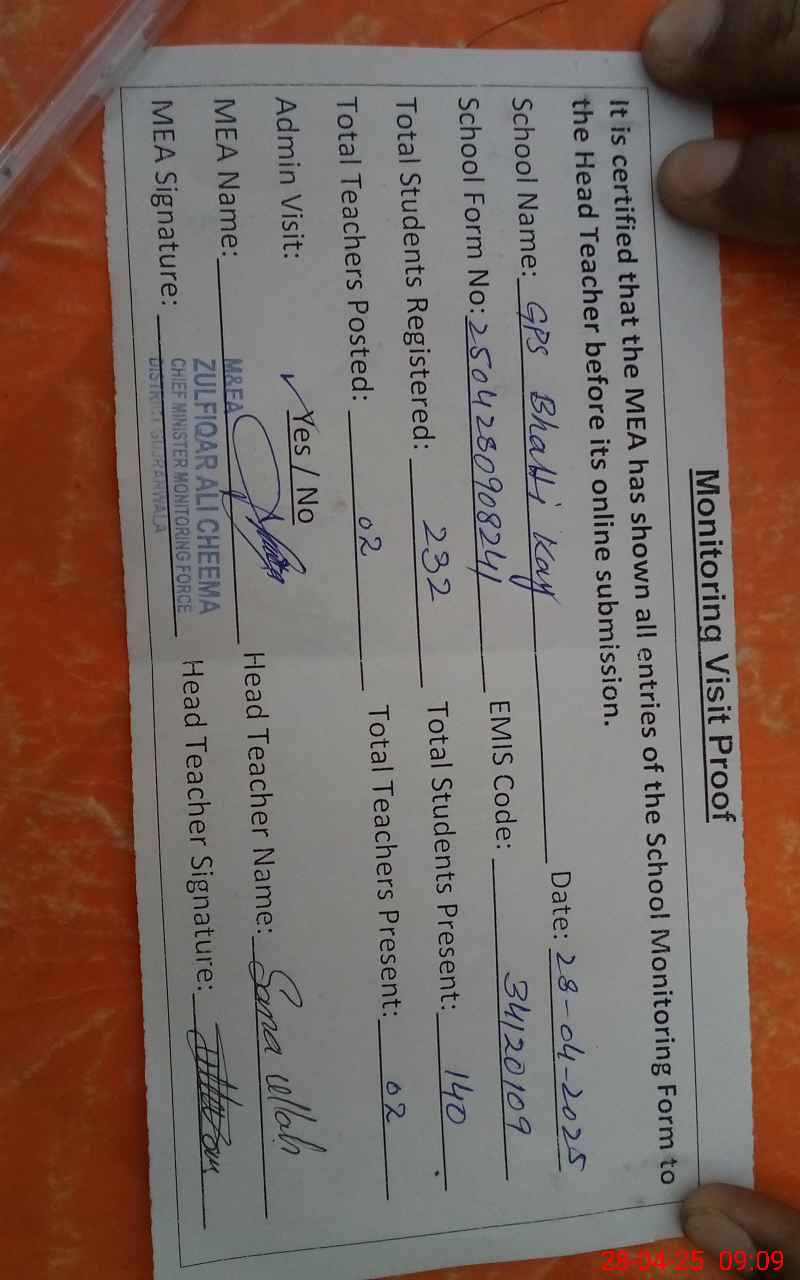 Monitoring Visit Proof
It is certified that the MEA has shown all entries of the School Monitoring Form to
the Head Teacher before its online submission.
School Name: GPS Bhatti Kay Date: 28-04-2025
School Form No: 2504280908241 EMIS Code: 34120109
Total Students Registered: 232 Total Students Present: 140
Total Teachers Posted: 02 Total Teachers Present: 02
Admin Visit: ✓ Yes / No
MEA Name: M&EA Head Teacher Name: Sana ullah
ZULFIQAR ALI CHEEMA
MEA Signature: CHIEF MINISTER MONITORING FORCE Head Teacher Signature:
DISTRICT GUJRANWALA
28-04-25 09:09